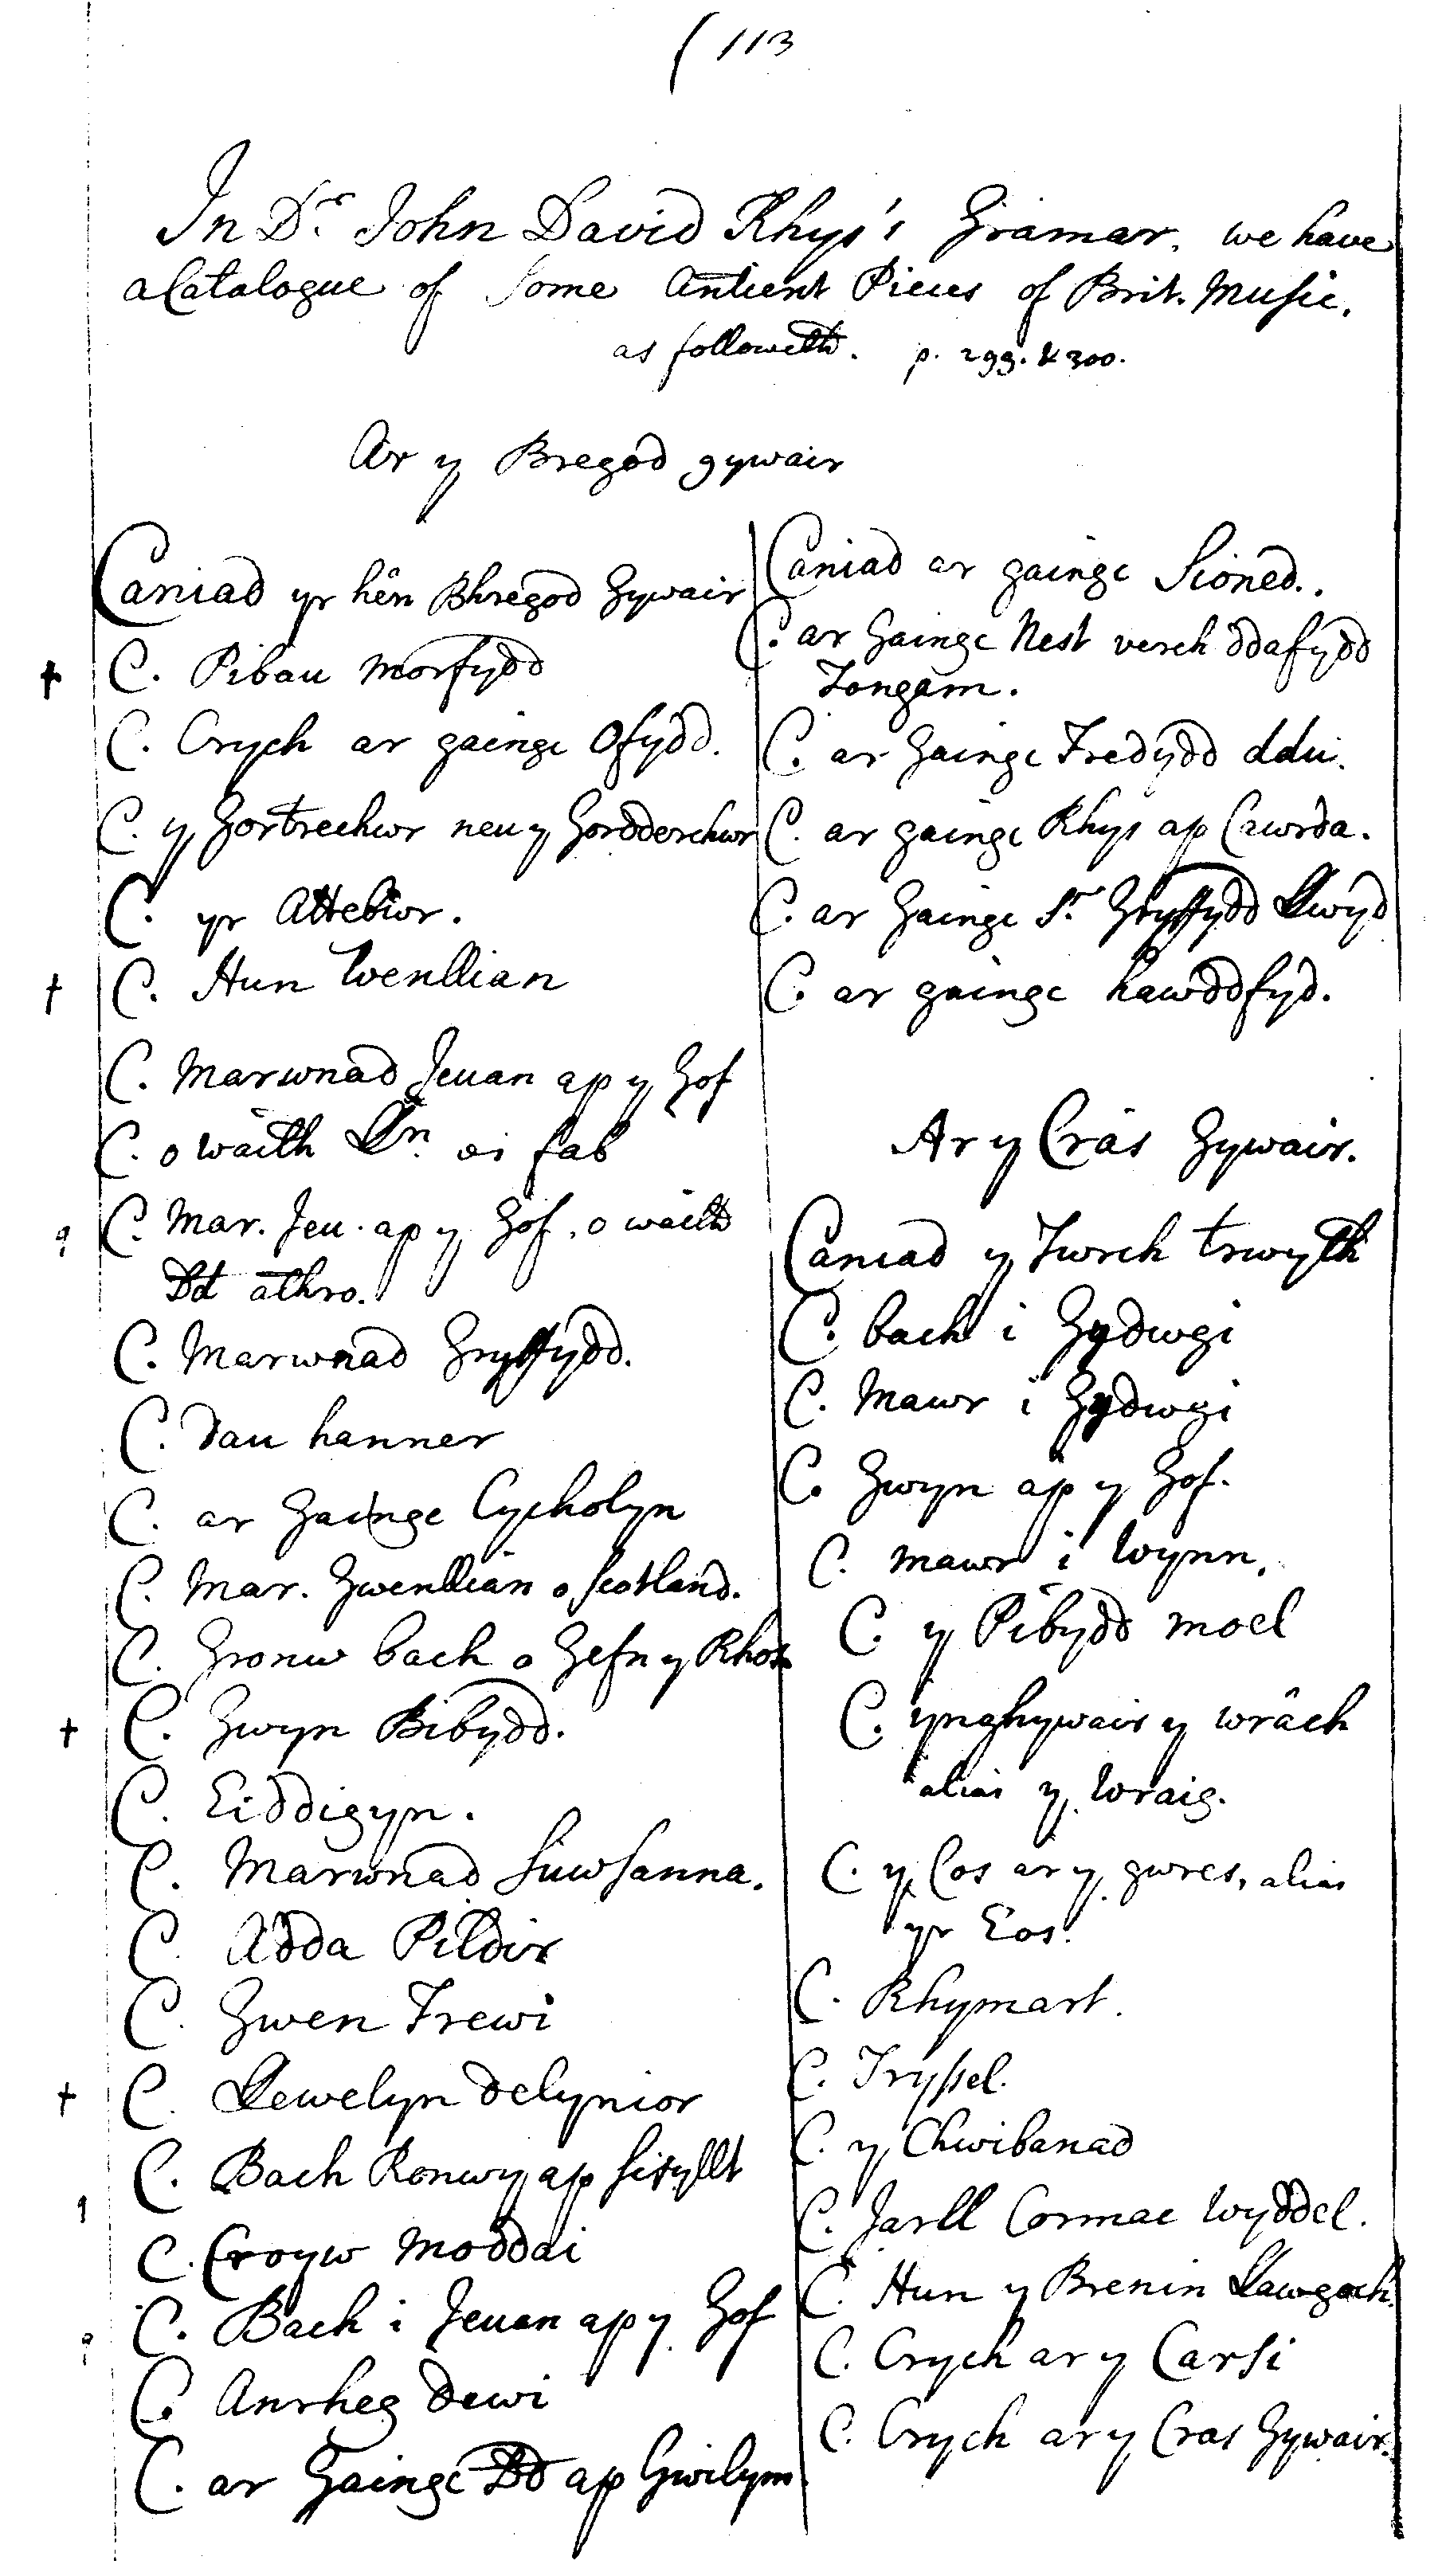 ( 113
In Dr. John David Rhys's Gramar. we have
a Catalogue of some Antient Pieces of Brit. Music.
as followeth. p. 299. & 300.
Ar y Bregod gywair
Caniad yr hên Bhregod Gywair
† C. Pibau Morfydd
C. Crych ar gainge Ofydd.
C. y Gortrechwr neu y Gordderchwr
C. yr Attebwr.
† C. Hun Wenllian
C. Marwnad Jeuan ap y Gof
C. o waith Lln. ei fab
q C. Mar. Jeu. ap y Gof. o waith
Dd athro.
C. Marwnad Gryffydd.
C. dau hanner
C. ar Gainge Cycholyn
C. Mar. Gwenllian o Scotland.
C. Gronw bach o Gefn y Rhos
† C. Gwyn Bibydd.
C. Eiddigyn.
C. Marwnad Siwsanna.
C. Adda Pildir
C. Gwen Trewi
† C. Llewelyn delynior
C. Bach Ronwy ap Sisyllt
q
C. Croyw Moddai
C. Bach i Jeuan ap y Gof
q
C. Anrheg Dewi
C. ar Gainge Dd ap Gwilym
Caniad ar gainge Sioned.
C. ar Gainge Nest verch ddafydd
Tongam.
C. ar Gainge Fredydd ddu.
C. ar gainge Rhys ap Cawrda.
C. ar Gainge Sr. Gryffydd Llwyd
C. ar gainge hawddfyd.
Ar y Cras Gywair.
Caniad y Twrch trwyth
C. bach i Gydwgi
C. Mawr i Gydwgi
C. Gwyn ap y Gof.
C. mawr i Wynn.
C. y Pibydd moel
C. ynghywair y wrâch
alias y Wraig.
C. y Cos ar y gwres, alias
yr Eos.
C. Rhymart.
C. Tryssel.
C. y Chwibanad
C. Jarll Cormac Wyddel.
C. Hun y Brenin Llawgoch.
C. Crych ar y Carsi
C. Crych ar y Cras Gywair.